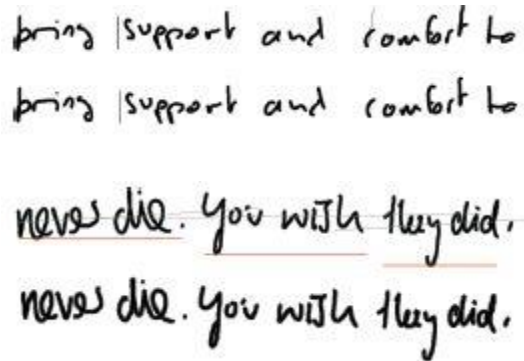 bring support and comfort to
bring support and comfort to
never die. You wish they did.
never die. You wish they did.